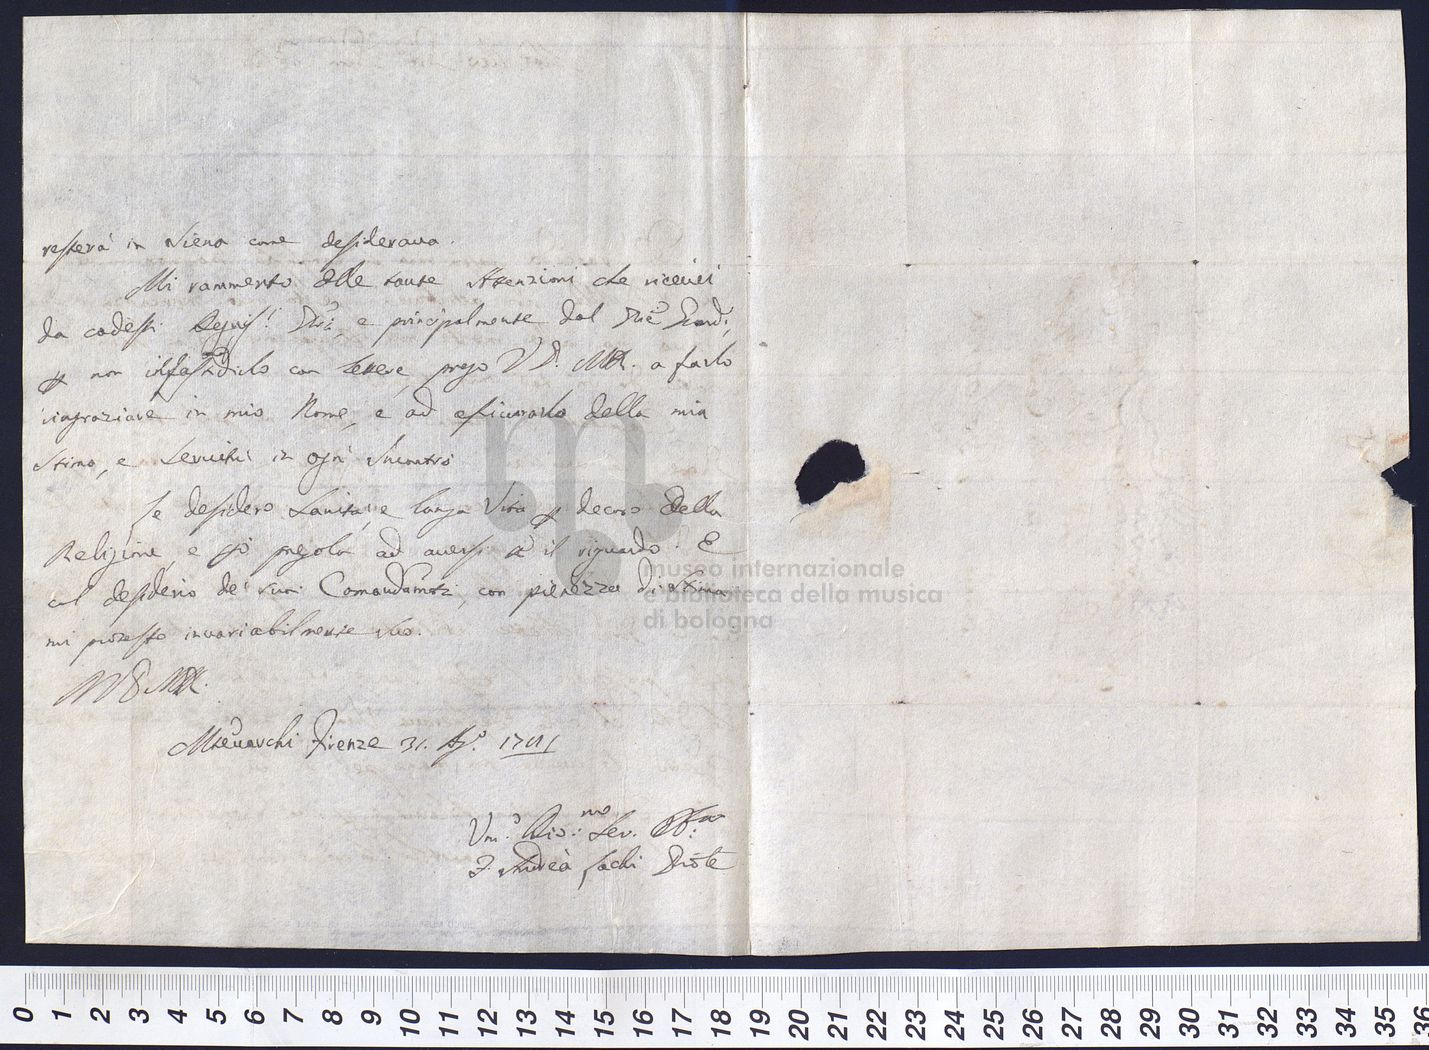 resterà in Siena come desiderava.
Mi rammento delle tante Attenzioni che ricevei
da codesti e principalmente dal
non infastidirlo con lettere, prego V. P. M. R. a farlo
ringraziare in mio Nome, e ad assicurarlo della mia
stima, e servitù in ogni Incontro
Le desidero Sanità, e lunga Vita decoro della
Religione, e pregola ad aversi il riguardo. E
col desiderio de' suoi Comandamti, con pienezza di stima
mi protesto invariabilmente suo.
Firenze 31. Ag.o
Um.o Div.mo Ser. Obb.mo
F. Andrea Sachi
museo internazionale
e biblioteca della musica
di bologna
0 1 2 3 4 5 6 7 8 9 10 11 12 13 14 15 16 17 18 19 20 21 22 23 24 25 26 27 28 29 30 31 32 33 34 35 36